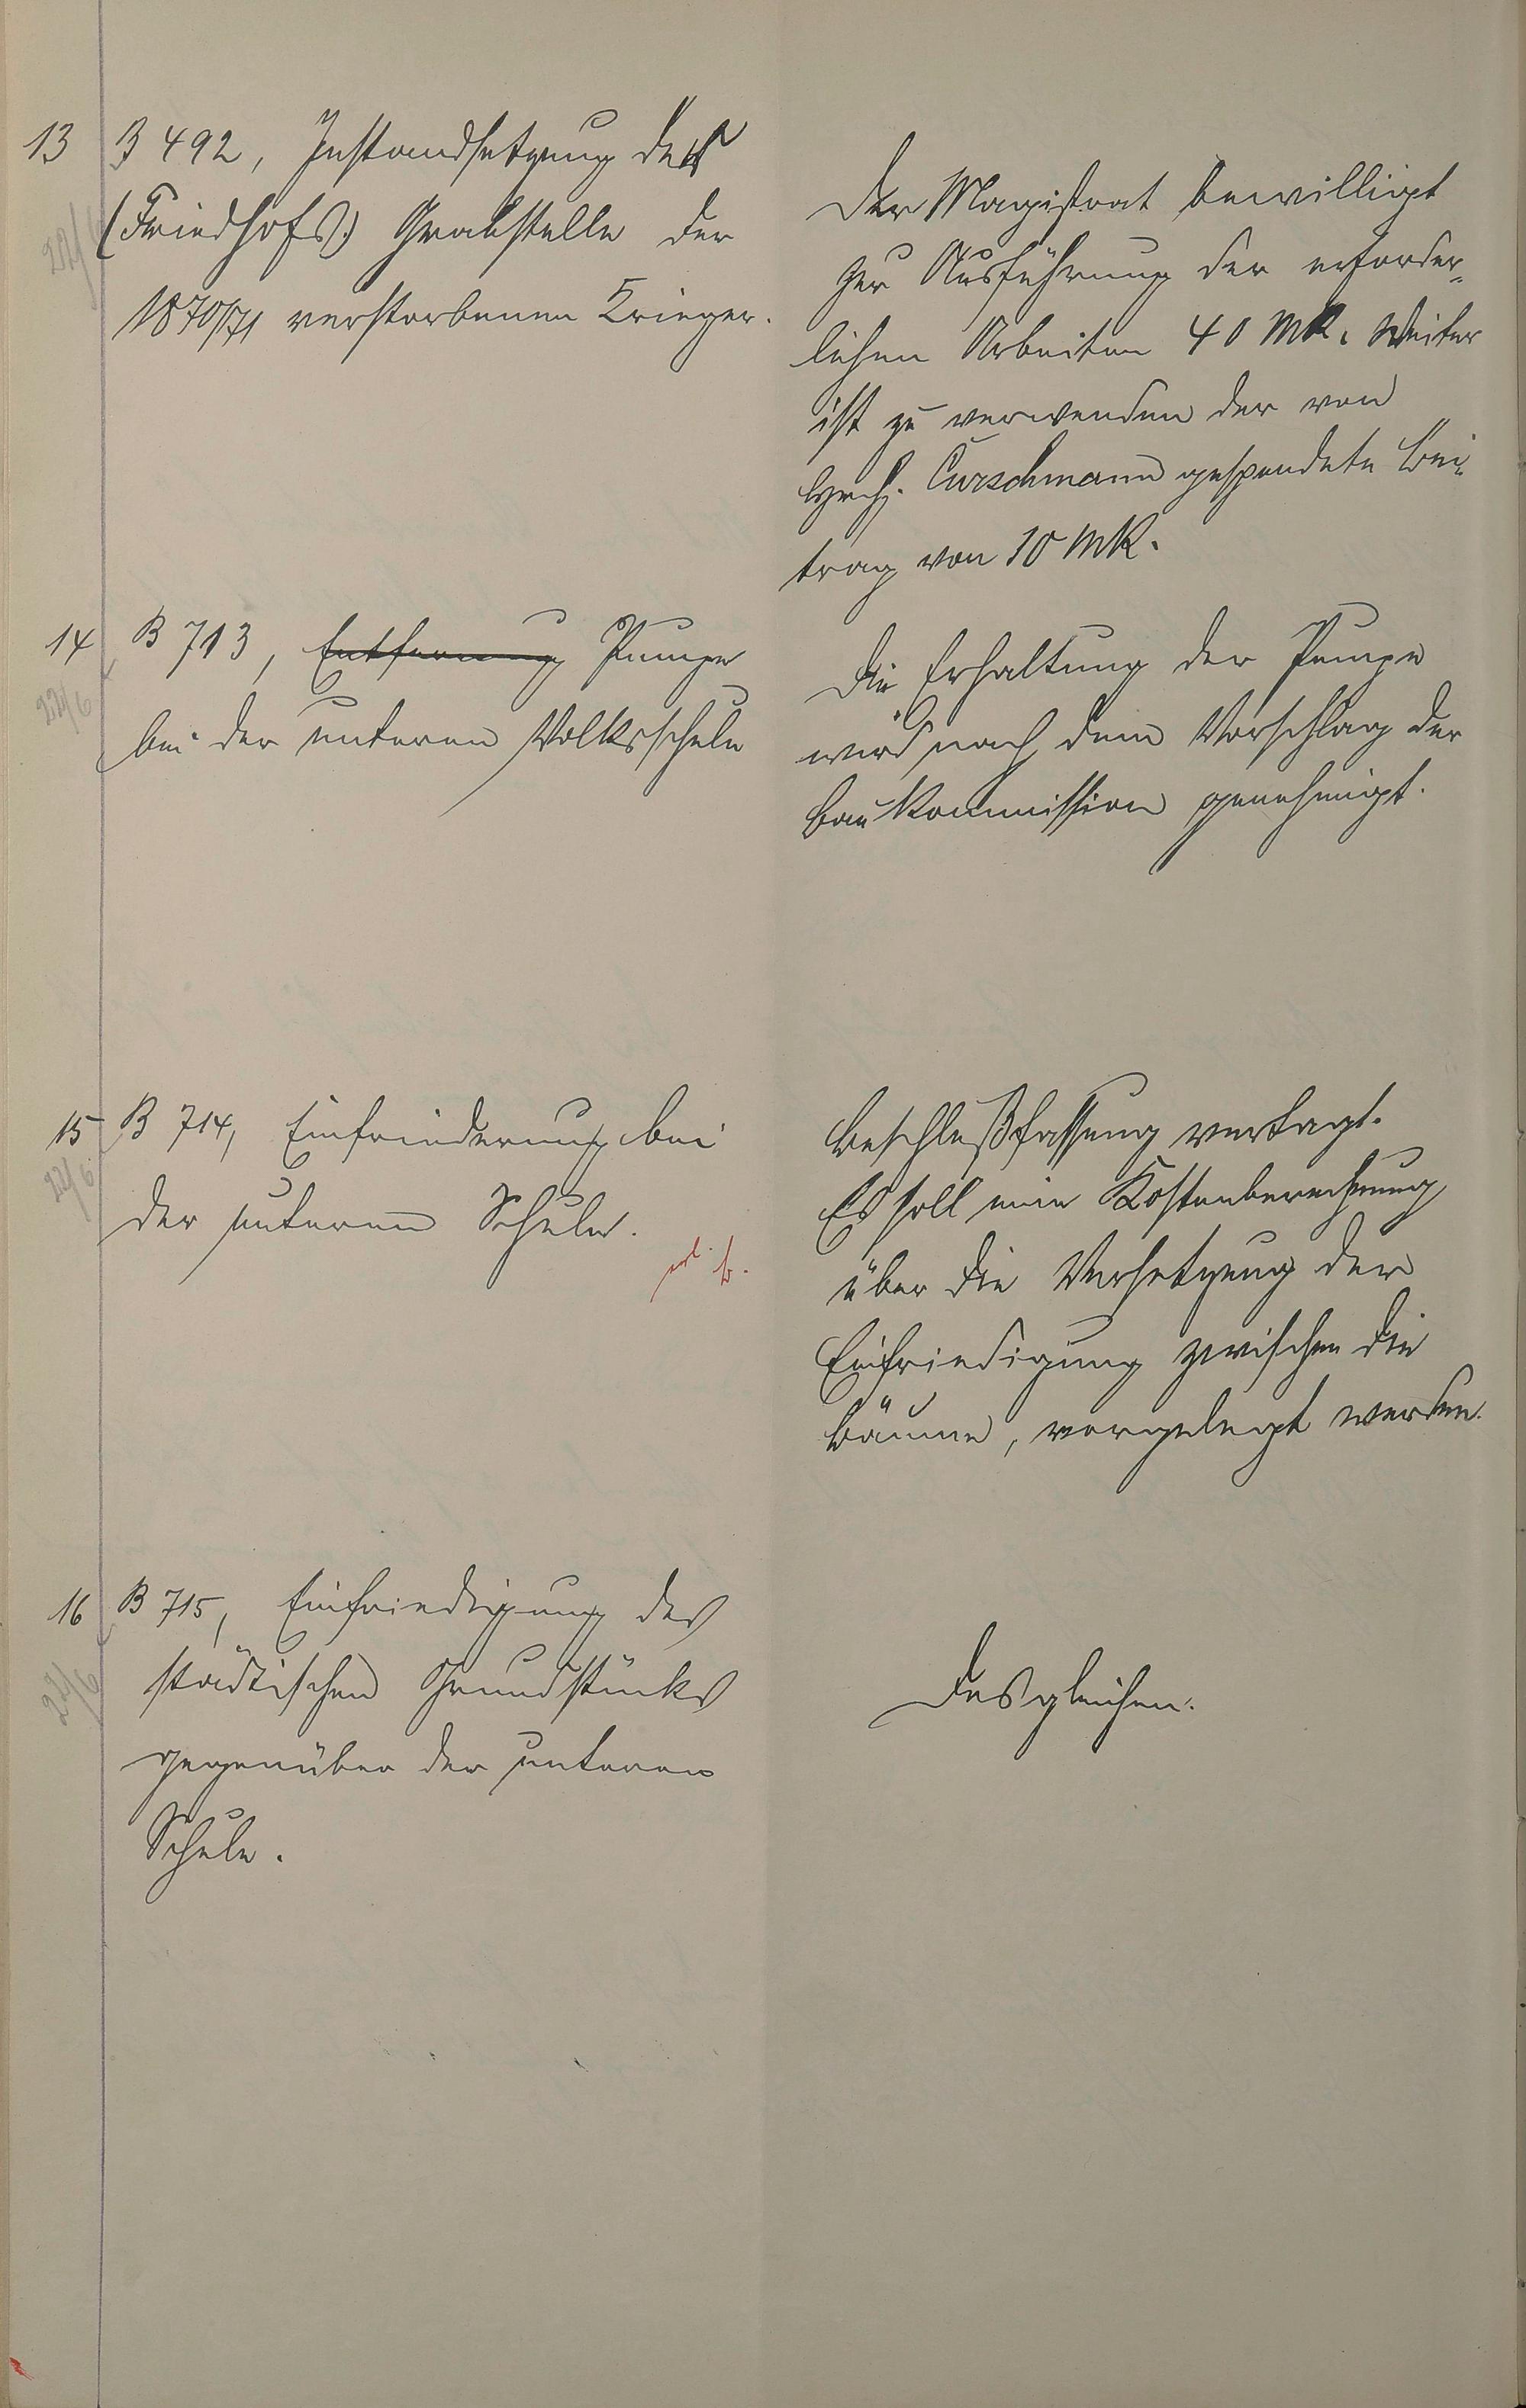 13 B 492, Instandsetzung der
(Friedhofs) Grabstelle der
1870/71 verstorbenen Krieger.
Der Magistrat bewilligt
zur Ausführung der erforder-
lichen Arbeiten 40 Mk. Weiter
ist zu verwenden der von
Curschmann gespendete Bei-
trag von 10 Mk.
14 B 713, Entfernung Pumpe
22/6
bei der unteren Volksschule
Die Erhaltung der Pumpe
wird nach dem Vorschlag der
Baukommission genehmigt.
15 B 714, Einfriederung bei
22/6
der unteren Schule.
Beschlußfassung vertagt.
Es soll eine Kostenberechnung
über die Versetzung der
Einfriedigung zwischen die
Bäume, vorgelegt werden.
16 B 715, Einfriedigung des
22/6
städtischen Grundstücks
gegenüber der unteren
Schule.
Desgleichen.